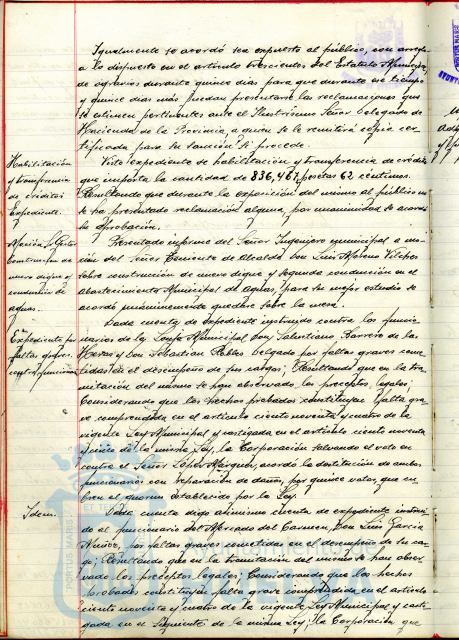 Igualmente se acordó sea expuesto al público, con arreglo
a lo dispuesto en el artículo trescientos del Estatuto Municipal,
durante quince días para que durante ese tiempo
y quince días más puedan presentarse las reclamaciones que
se estimen pertinentes ante el Ilustrísimo Señor Delegado de
Hacienda de la Provincia, a quien se le remitirá copia cer-
tificada para su sanción si procede.
Habilitación
y transferencia
de créditos
Expediente.
Visto expediente de habilitación y transferencia de crédito
que importa la cantidad de 836,467 pesetas 62 céntimos.
Resultando que durante la exposición del mismo al público no
se ha presentado reclamación alguna, por unanimidad se acordó
su aprobación.
Moción
construcción de
nuevo dique y
conducción de
aguas.
Presentado informe del Señor Ingeniero municipal a mo-
ción del Señor Teniente de Alcalde Don Luis Moreno Vilches
sobre construcción de nuevo dique y segunda conducción en el
abastecimiento Municipal de Aguas, para su mejor estudio se
acordó unánimemente quedase sobre la mesa.
Expediente por
faltas graves
Dada cuenta de expediente instruido contra los funcio-
narios de la Municipal Don Salustiano Barrero de las
Heras y Don Sebastian Robles Delgado por faltas graves come-
tidas en el desempeño de sus cargos; Resultando que en la tra-
mitación del mismo se han observado los preceptos legales;
Considerando que los hechos probados constituyen falta gra-
ve comprendida en el artículo ciento noventa y cuatro de la
vigente Ley Municipal y castigada en el artículo ciento noventa
y cinco de la misma Ley, la Corporación salvando el voto en
contra el Señor López Márquez, acordó la destitución de ambos
funcionarios con reparación de daños, por quince votos, que cu-
bren el quorum establecido por la Ley.
Idem.
Dada cuenta digo asimismo cuenta de expediente instrui-
do al funcionario del Mercado del Carmen, Don Luis García
Nuñez, por faltas graves cometidas en el desempeño de su car-
go; Resultando que en la tramitación del mismo se han obser-
vado los preceptos legales; Considerando que los hechos
probados constituyen falta grave comprendida en el artículo
ciento noventa y cuatro de la vigente Ley Municipal y casti-
gada en el siguiente de la misma Ley; la Corporación que